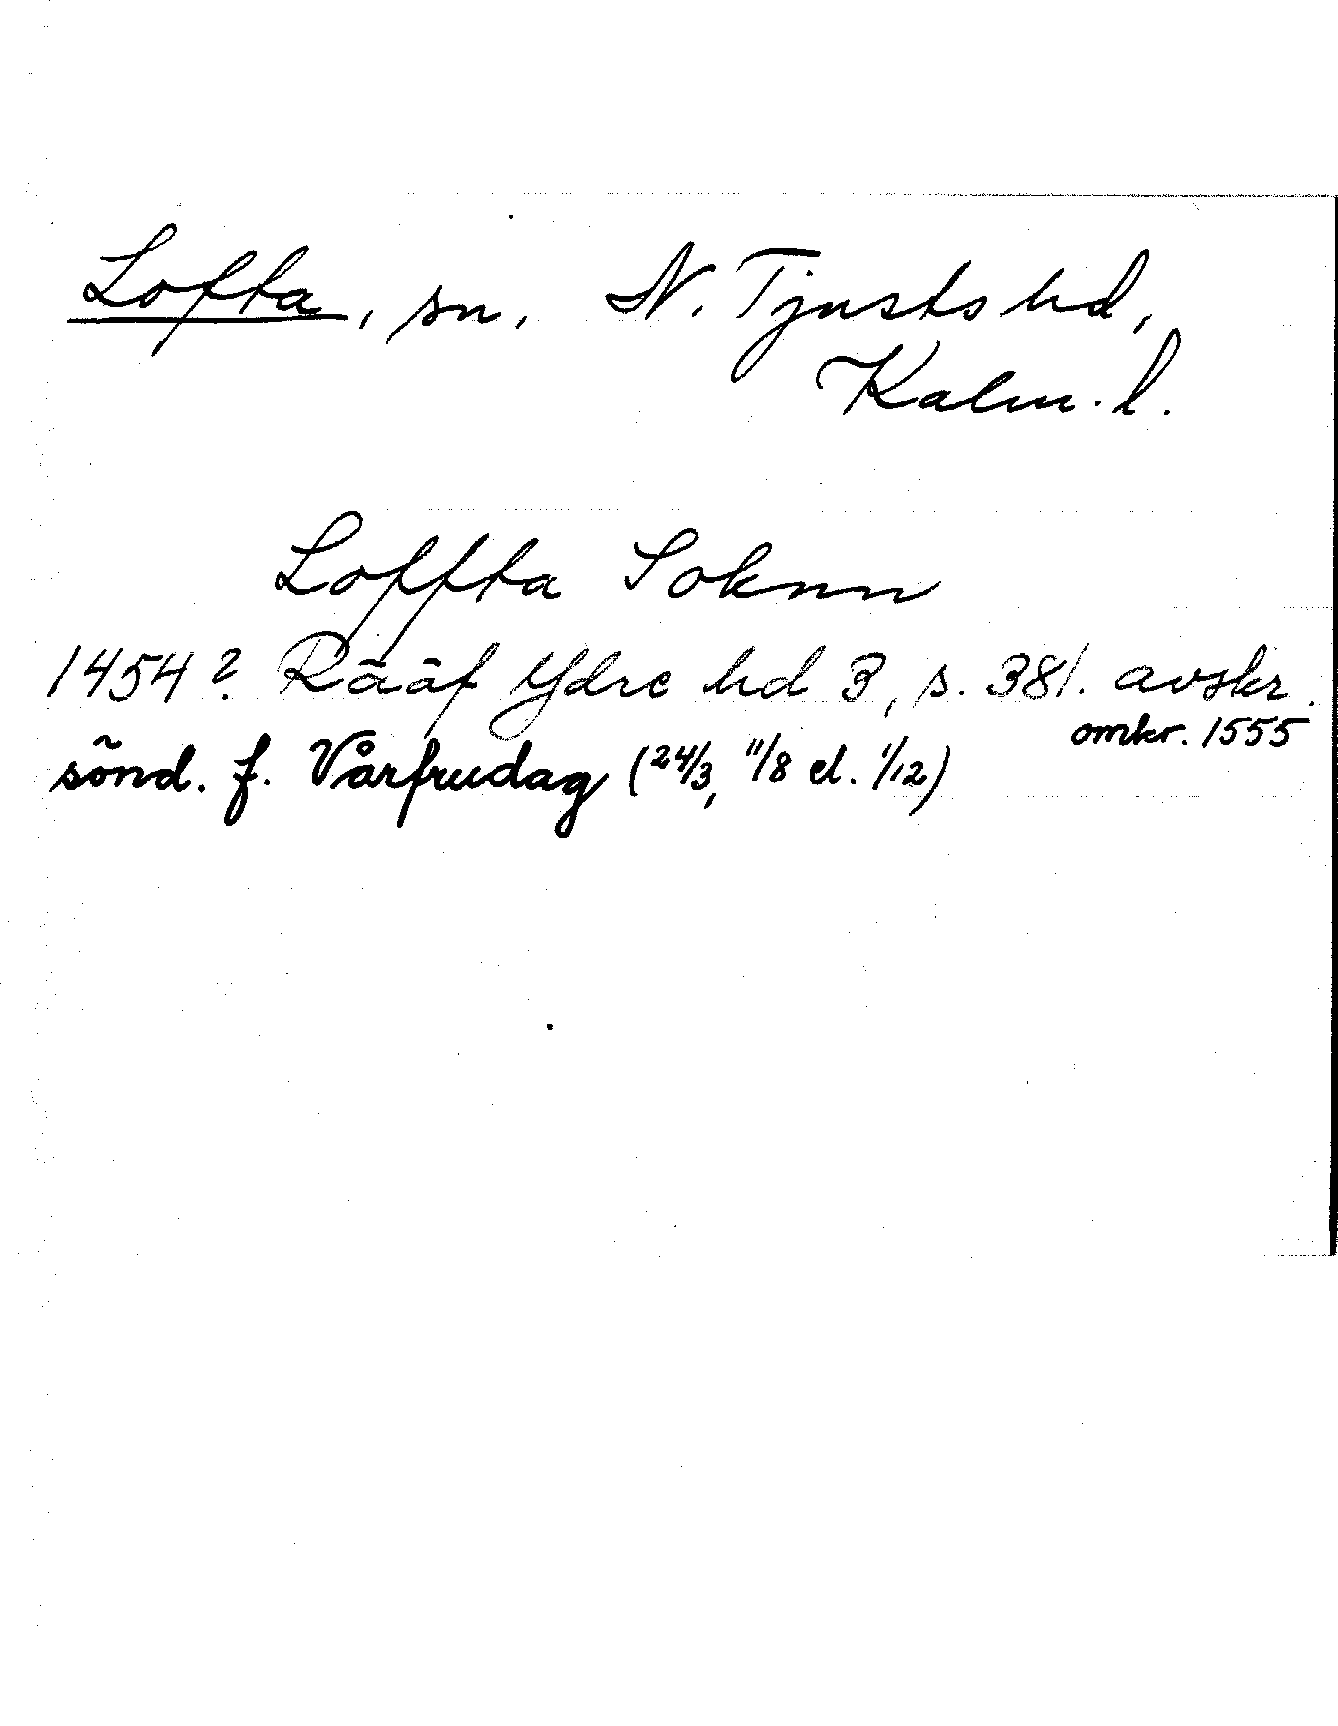 Lofta, sn, N. Tjusts hd,
Kalm. l.
Loffta Soknn
1454? Rääf Ydre hd 3, s. 381. avskr.
omkr. 1555
sönd. f. Vårfrudag (24/3, 11/8 el. 1/12)